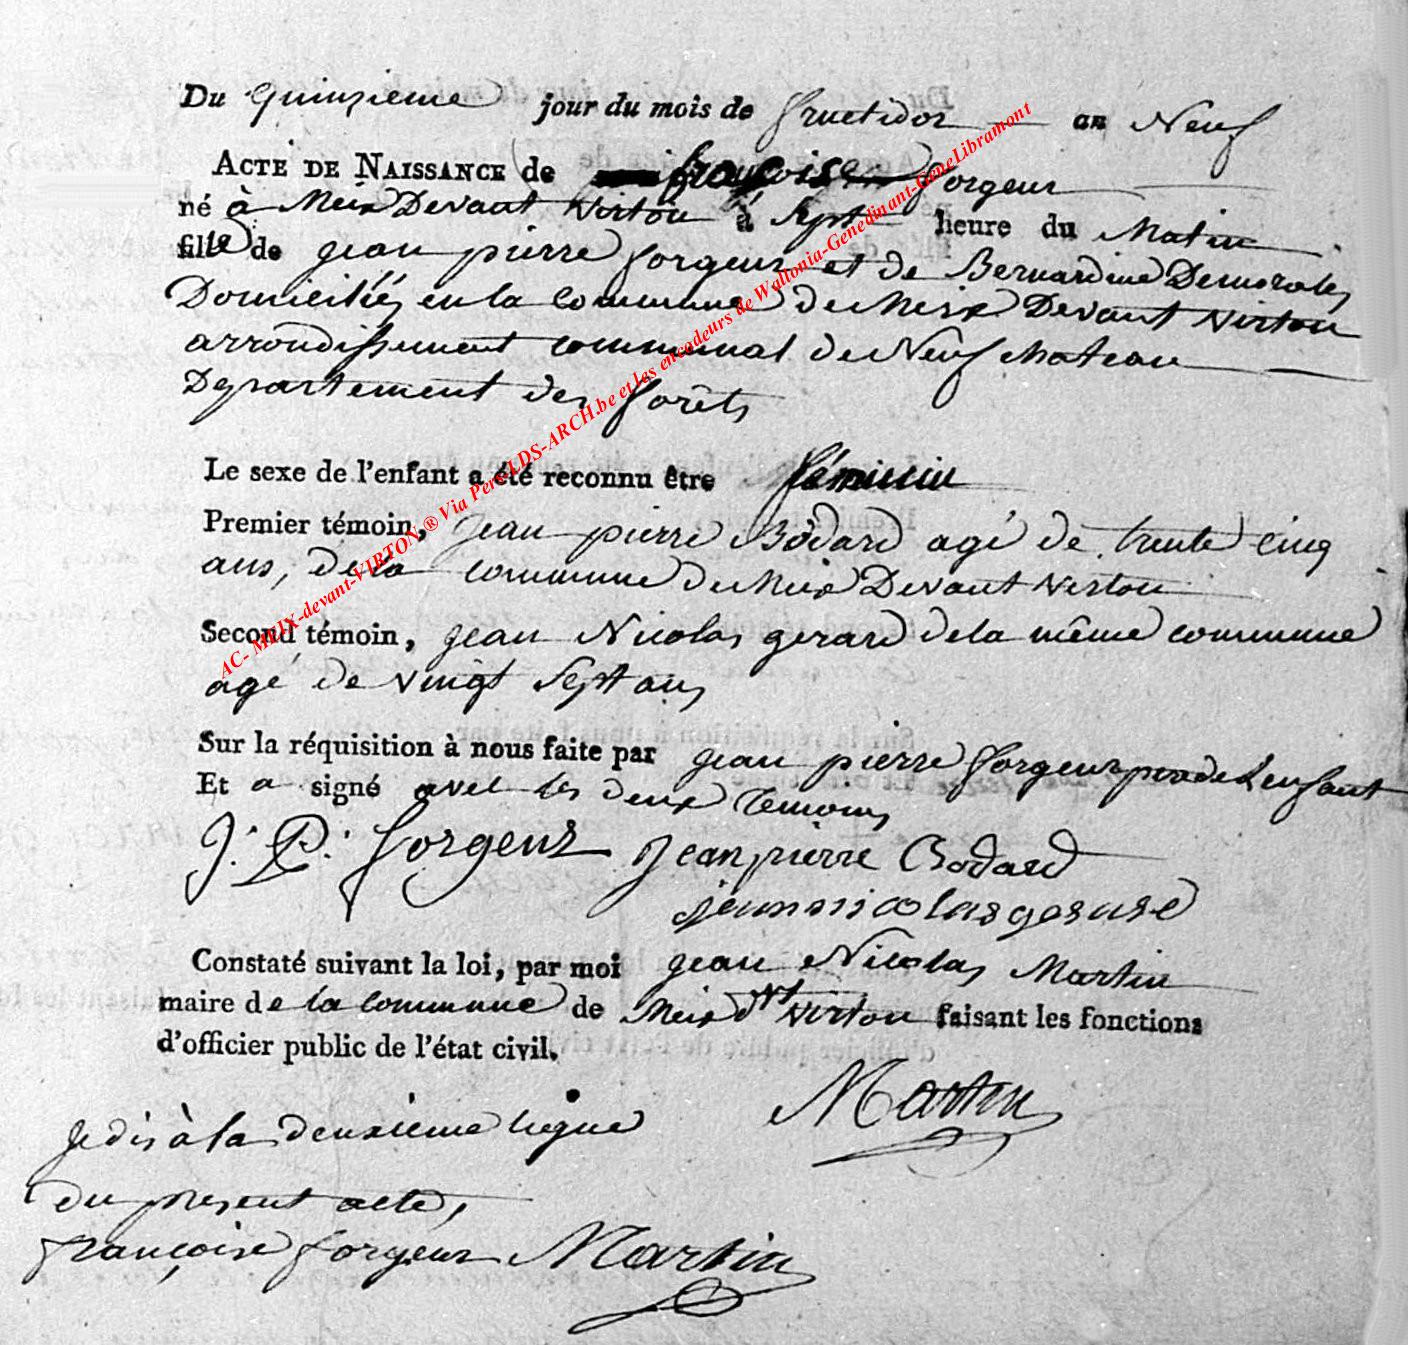 Du quinzieme jour du mois de fructidor an Neuf
ACTE DE NAISSANCE de françoise forgeur
né à Meix Devant Virton à Sept heure du Matin
fille de jean pierre forgeur et de Bernardine Demorale
Domiciliés en la commune de Meix Devant Virton
arrondissement communal de Neufchateau
Departement des forêts
Le sexe de l'enfant a été reconnu être féminin
Premier témoin, jean pierre Bodard agé de trente cinq
ans, de la commune de Meix Devant Virton
Second témoin, jean Nicolas gerard de la même commune
agé de vingt Sept ans
Sur la réquisition à nous faite par jean pierre forgeur pere de L'enfant
Et a signé avec les deux Temoins
J. P. forgeur jean pierre Bodard
jean nicolas gerard
Constaté suivant la loi, par moi jean Nicolas Martin
maire de la commune de Meix dvt Virton faisant les fonctions
d'officier public de l'état civil.
Martin
je dis à la deuxieme ligne
du present acte,
françoise forgeur Martin
AC- MEIX-devant-VIRTON ® Via Pers LDS-ARCH.be et les encodeurs de Wallonia-Genedinant-GeneLibramont